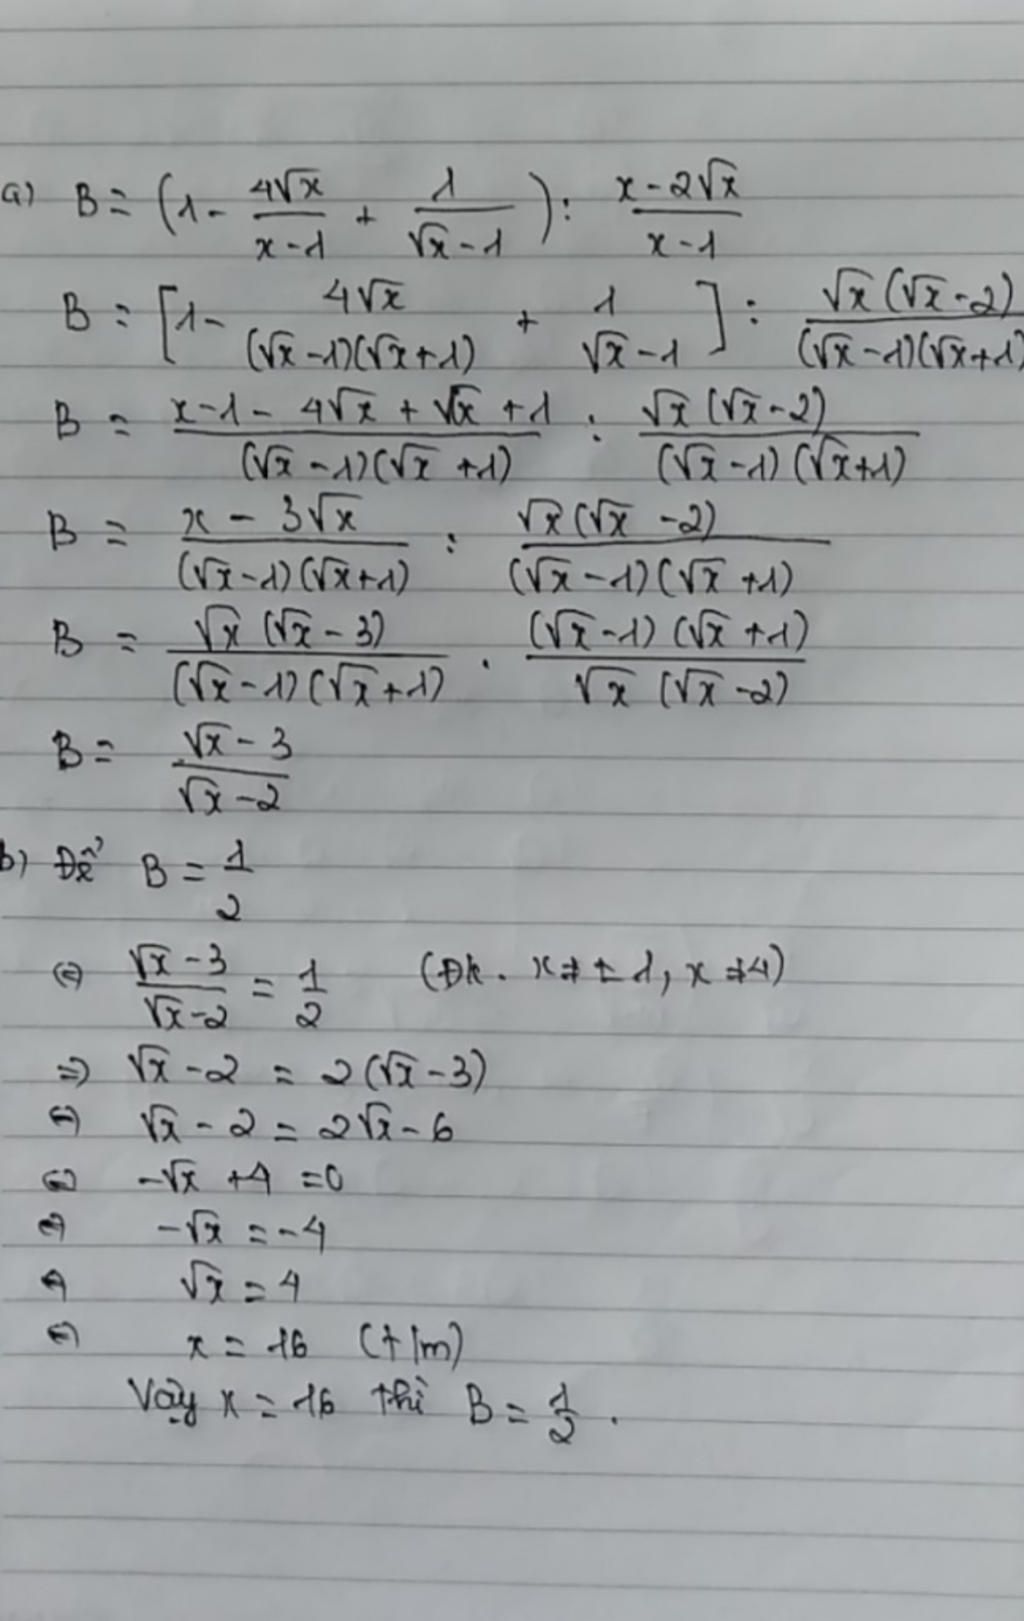 a) B = (1 - 4√x/(x-1) + 1/(√x-1)) : (x-2√x)/(x-1)
B = [1 - 4√x/((√x-1)(√x+1)) + 1/(√x-1)] : √x(√x-2)/((√x-1)(√x+1))
B = (x-1-4√x+√x+1)/((√x-1)(√x+1)) : √x(√x-2)/((√x-1)(√x+1))
B = (x-3√x)/((√x-1)(√x+1)) : √x(√x-2)/((√x-1)(√x+1))
B = √x(√x-3)/((√x-1)(√x+1)) . (√x-1)(√x+1)/(√x(√x-2))
B = (√x-3)/(√x-2)
b) Để B = 1/2
⇔ (√x-3)/(√x-2) = 1/2 (Đk. x ≠ ± 1, x ≠ 4)
⇒ √x - 2 = 2(√x-3)
⇔ √x - 2 = 2√x - 6
⇔ -√x + 4 = 0
⇔ -√x = -4
⇔ √x = 4
⇔ x = 16 (t/m)
Vậy x = 16 thì B = 1/2 .